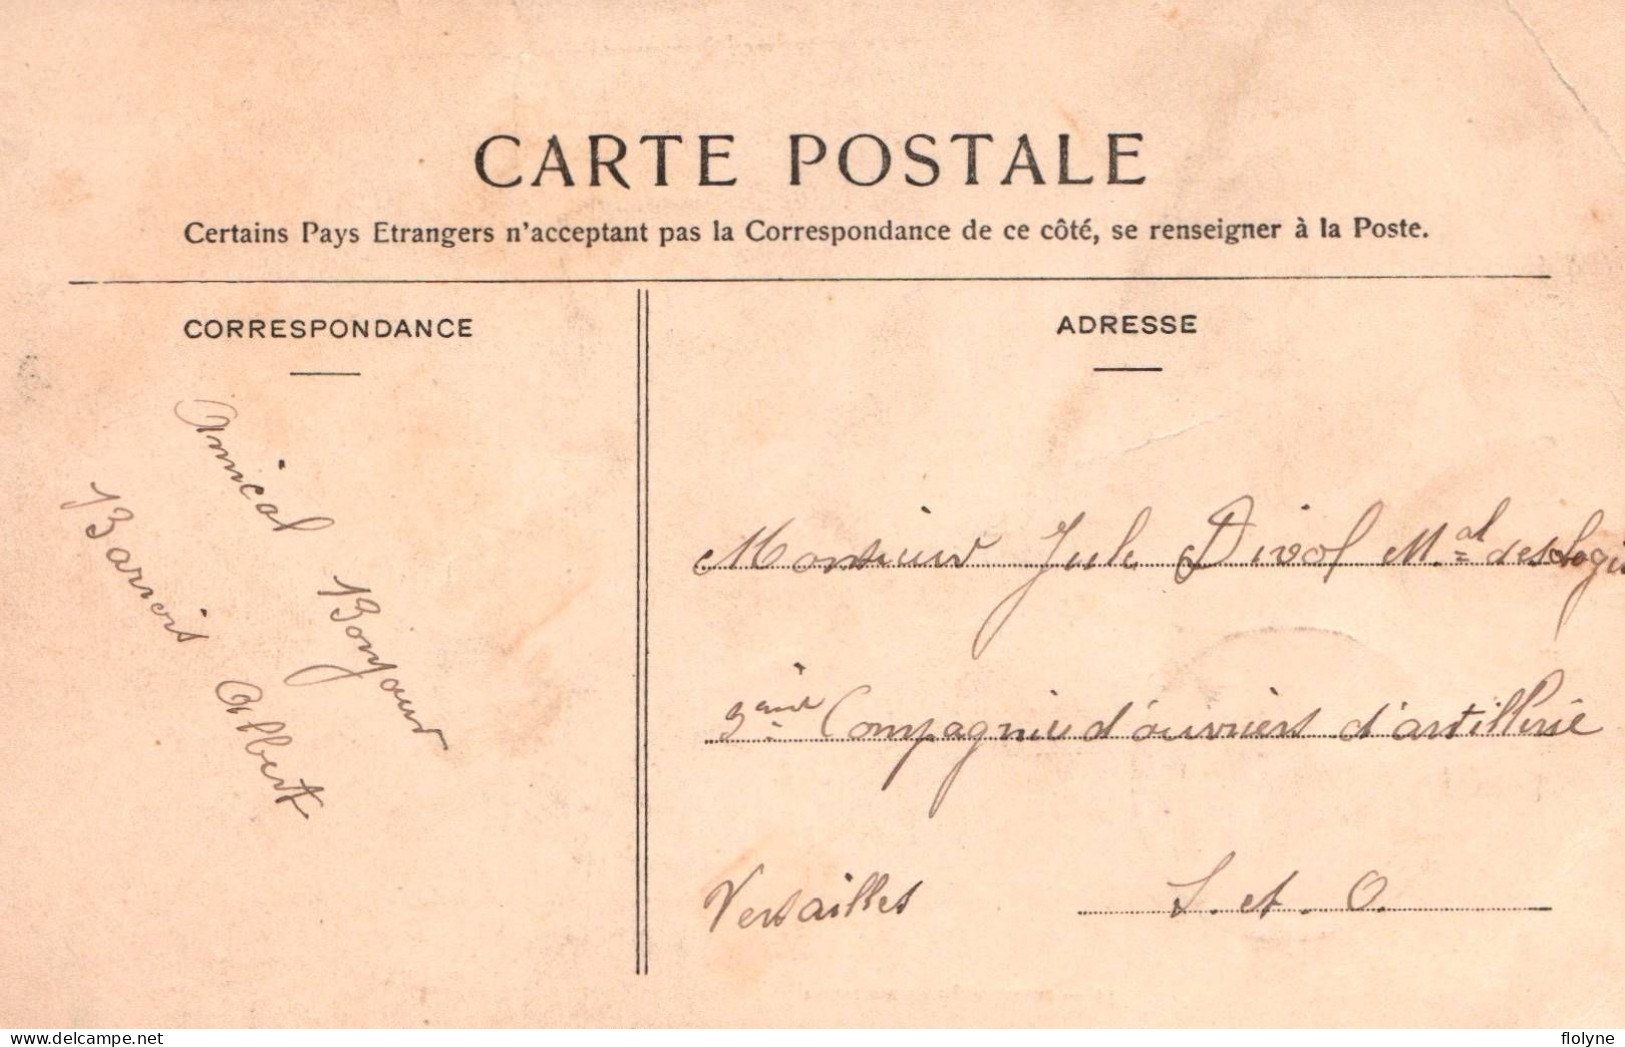 CARTE POSTALE
Certains Pays Etrangers n'acceptant pas la Correspondance de ce côté, se renseigner à la Poste.
CORRESPONDANCE
Amical Bonjour
Barrois Albert
ADRESSE
Monsieur Jule Divol M.al des Logis
3ème Compagnie d'ouvriers d'artillerie
Versailles S. et. O.
delcampe.net
flolyne